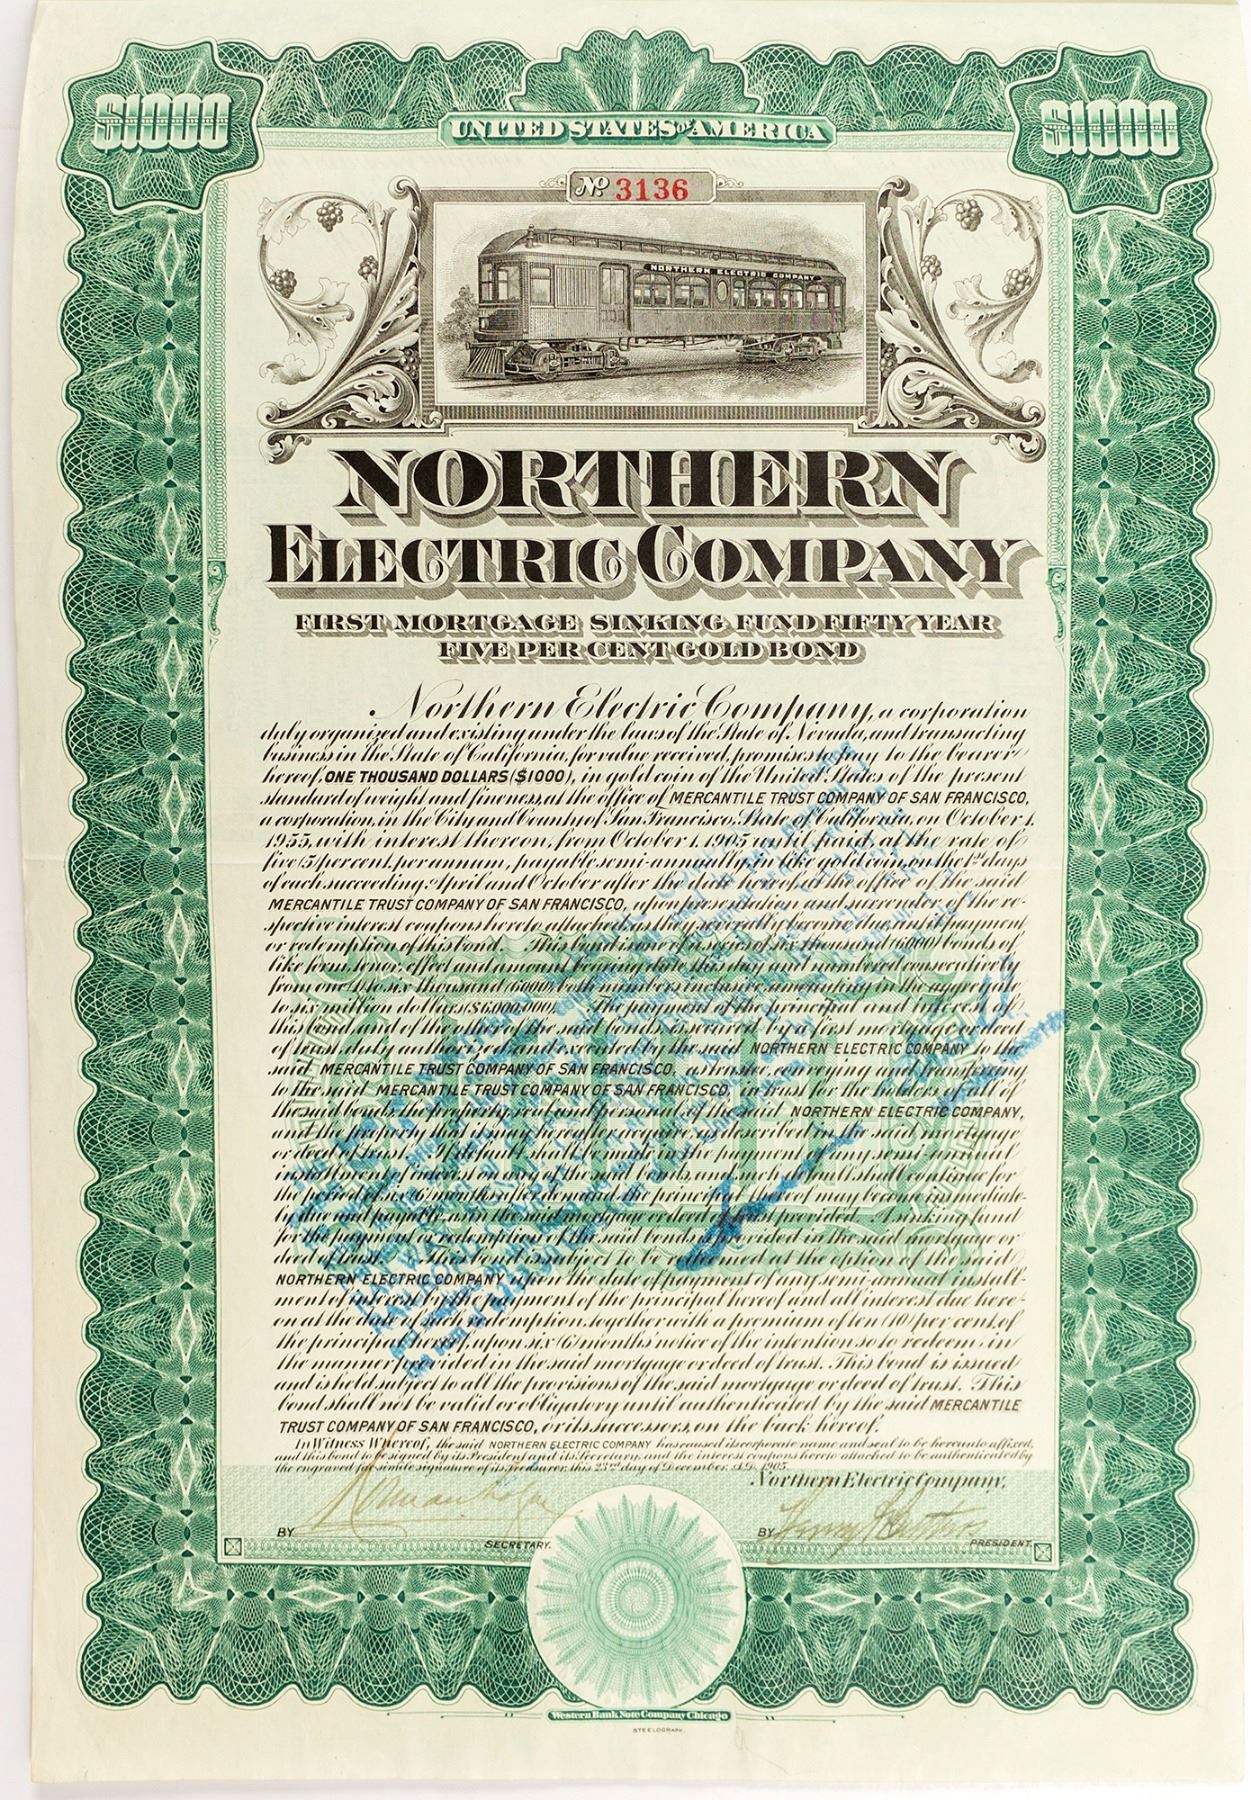 $1000
UNITED STATES OF AMERICA
$1000
No. 3136
NORTHERN ELECTRIC COMPANY
NORTHERN
ELECTRIC COMPANY
FIRST MORTGAGE SINKING FUND FIFTY YEAR
FIVE PER CENT GOLD BOND
Northern Electric Company, a corporation
duly organized and existing under the laws of the State of Nevada, and transacting
business in the State of California, for value received, promises to pay to the bearer
hereof, ONE THOUSAND DOLLARS ($1000), in gold coin of the United States of the present
standard of weight and fineness, at the office of MERCANTILE TRUST COMPANY OF SAN FRANCISCO,
a corporation, in the City and County of San Francisco, State of California, on October 1,
1955, with interest thereon, from October 1, 1905 until paid, at the rate of
five (5) per cent. per annum, payable semi-annually, in like gold coin, on the 1st days
of each succeeding April and October after the date hereof, at the office of the said
MERCANTILE TRUST COMPANY OF SAN FRANCISCO, upon presentation and surrender of the re-
spective interest coupons hereto attached as they severally become due, until payment
or redemption of this bond. This bond is one of a series of six thousand (6000) bonds of
like form, tenor, effect and amount bearing date this day and numbered consecutively
from one (1) to six thousand (6000), both numbers inclusive, amounting in the aggregate
to six million dollars, $6,000,000. The payment of the principal and interest of
this bond and of the other of the said bonds is secured by a first mortgage or deed
of trust, duly authorized and executed by the said NORTHERN ELECTRIC COMPANY to the
said MERCANTILE TRUST COMPANY OF SAN FRANCISCO, as trustee, conveying and transferring
to the said MERCANTILE TRUST COMPANY OF SAN FRANCISCO, in trust for the holders of all of
the said bonds the property, real and personal, of the said NORTHERN ELECTRIC COMPANY,
and the property that it may hereafter acquire, as described in the said mortgage
or deed of trust. If default shall be made in the payment of any semi-annual
installment of interest on any of the said bonds, and such default shall continue for
the period of six (6) months after demand, the principal thereof may become immediate-
ly due and payable, as in the said mortgage or deed of trust provided. A sinking fund
for the payment or redemption of the said bonds is provided in the said mortgage or
deed of trust. This bond is subject to be redeemed at the option of the said
NORTHERN ELECTRIC COMPANY upon the date of payment of any semi-annual install-
ment of interest by the payment of the principal hereof and all interest due here-
on at the date of such redemption, together with a premium of ten (10) per cent. of
the principal hereof, upon six (6) months' notice of the intention so to redeem, in
the manner provided in the said mortgage or deed of trust. This bond is issued
and is held subject to all the provisions of the said mortgage or deed of trust. This
bond shall not be valid or obligatory until authenticated by the said MERCANTILE
TRUST COMPANY OF SAN FRANCISCO, or its successors, on the back hereof.
In Witness Whereof, the said NORTHERN ELECTRIC COMPANY has caused its corporate name and seal to be hereunto affixed,
and this bond to be signed by its President and its Secretary, and the interest coupons hereto attached to be authenticated by
the engraved fac-simile signature of its Treasurer, this 23rd day of December, A.D. 1905.
Northern Electric Company,
BY
SECRETARY.
BY
PRESIDENT.
Western Bank Note Company Chicago
STEELOGRAPH.